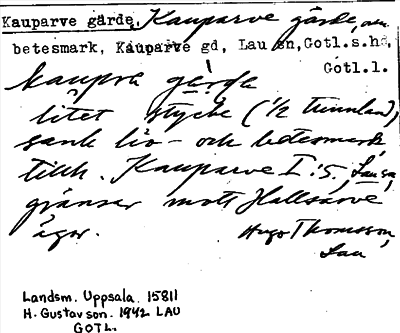 Kauparve gärde, Kauparve gärde,
betesmark, Kauparve gd, Lau sn, Gotl.s.hd,
Gotl.l.
kaupra gärde
litet stycke (1/2 tunnland),
sank liö- och betesmark,
tillh. Kauparve I:5, Lau sn,
gränsar mott Hallsarve
ägor. Hugo Thomsson,
Lau
Landsm. Uppsala. 15811
H. Gustavson. 1942 LAU
GOTL.